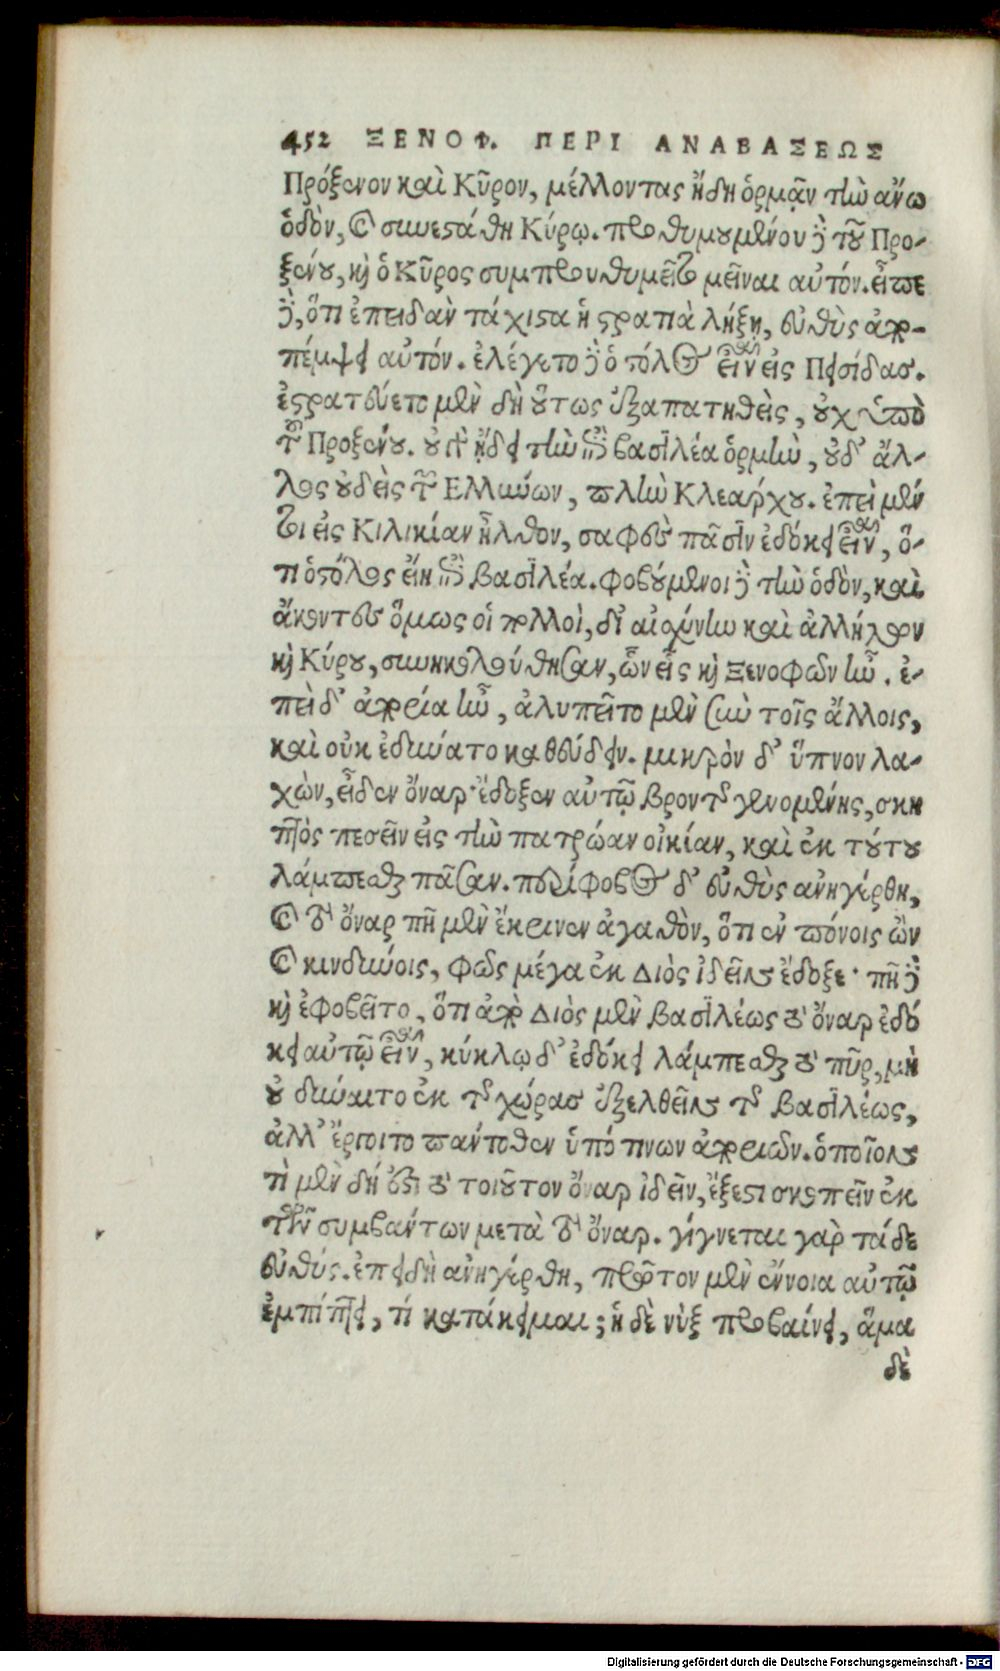 452 ΞΕΝΟΦ. ΠΕΡΙ ΑΝΑΒΑΣΕΩΣ
Πρόξενον καὶ Κῦρον, μέλλοντας ἤδη ὁρμᾷν τὴν ἄνω
ὁδὸν, καὶ συνεστάθη Κύρῳ. προθυμουμένου δὲ τοῦ Προ-
ξένου, καὶ ὁ Κῦρος συμπρουθυμεῖτο μεῖναι αὐτόν. εἶπε
δὲ, ὅτι ἐπειδὰν τάχιστα ἡ στρατιὰ λήξῃ, εὐθὺς ἀπο-
πέμψει αὐτόν. ἐλέγετο δὲ ὁ στόλος εἶναι εἰς Πεισίδας.
ἐστρατεύετο μὲν δὴ οὕτως ἐξαπατηθεὶς, οὐχ ὑπὸ
τοῦ Προξένου. οὐ γὰρ ᾔδει τὴν ἐπὶ βασιλέα ὁρμὴν, οὐδ' ἄλ-
λος οὐδεὶς τῶν Ἑλλήνων, πλὴν Κλεάρχου. ἐπεὶ μέν
τοι εἰς Κιλικίαν ἦλθον, σαφὲς πᾶσιν ἐδόκει εἶναι, ὅ-
τι ὁ στόλος εἴη ἐπὶ βασιλέα. φοβούμενοι δὲ τὴν ὁδὸν, καὶ
ἄκοντες ὅμως οἱ πολλοὶ, δι' αἰσχύνην καὶ ἀλλήλων
καὶ Κύρου, συνηκολούθησαν, ὧν εἷς καὶ Ξενοφῶν ἦν. ἐ-
πεὶ δ' ἀπορία ἦν, ἀλυπεῖτο μὲν σὺν τοῖς ἄλλοις,
καὶ οὐκ ἐδύνατο καθεύδειν. μικρὸν δ' ὕπνον λα-
χὼν, εἶδεν ὄναρ· ἔδοξεν αὐτῷ βροντῆς γενομένης, σκη
πτὸς πεσεῖν εἰς τὴν πατρῴαν οἰκίαν, καὶ ἐκ τούτου
λάμπεσθαι πᾶσαν. περίφοβος δ' εὐθὺς ἀνηγέρθη,
καὶ τὸ ὄναρ πῆ μὲν ἔκρινεν ἀγαθὸν, ὅτι ἐν πόνοις ὢν
καὶ κινδύνοις, φῶς μέγα ἐκ Διὸς ἰδεῖν ἔδοξε· πῆ δὲ
καὶ ἐφοβεῖτο, ὅτι ἀπὸ Διὸς μὲν βασιλέως τὸ ὄναρ ἐδό
κει αὐτῷ εἶναι, κύκλῳ δ' ἐδόκει λάμπεσθαι τὸ πῦρ, μὴ
οὐ δύναιτο ἐκ τῆς χώρας ἐξελθεῖν τῆς βασιλέως,
ἀλλ' ἔργοιτο πάντοθεν ὑπό τινων ἀποριῶν. ὁποῖόν
τι μὲν δή ἐστι τὸ τοιοῦτον ὄναρ ἰδεῖν, ἔξεστι σκοπεῖν ἐκ
τῶν συμβάντων μετὰ τὸ ὄναρ. γίγνεται γὰρ τάδε
εὐθύς. ἐπειδὴ ἀνηγέρθη, πρῶτον μὲν ἔννοια αὐτῷ
ἐμπίπτει, τί κατάκειμαι; ἡ δὲ νὺξ προβαίνει, ἅμα
δὲ
Digitalisierung gefördert durch die Deutsche Forschungsgemeinschaft - DFG